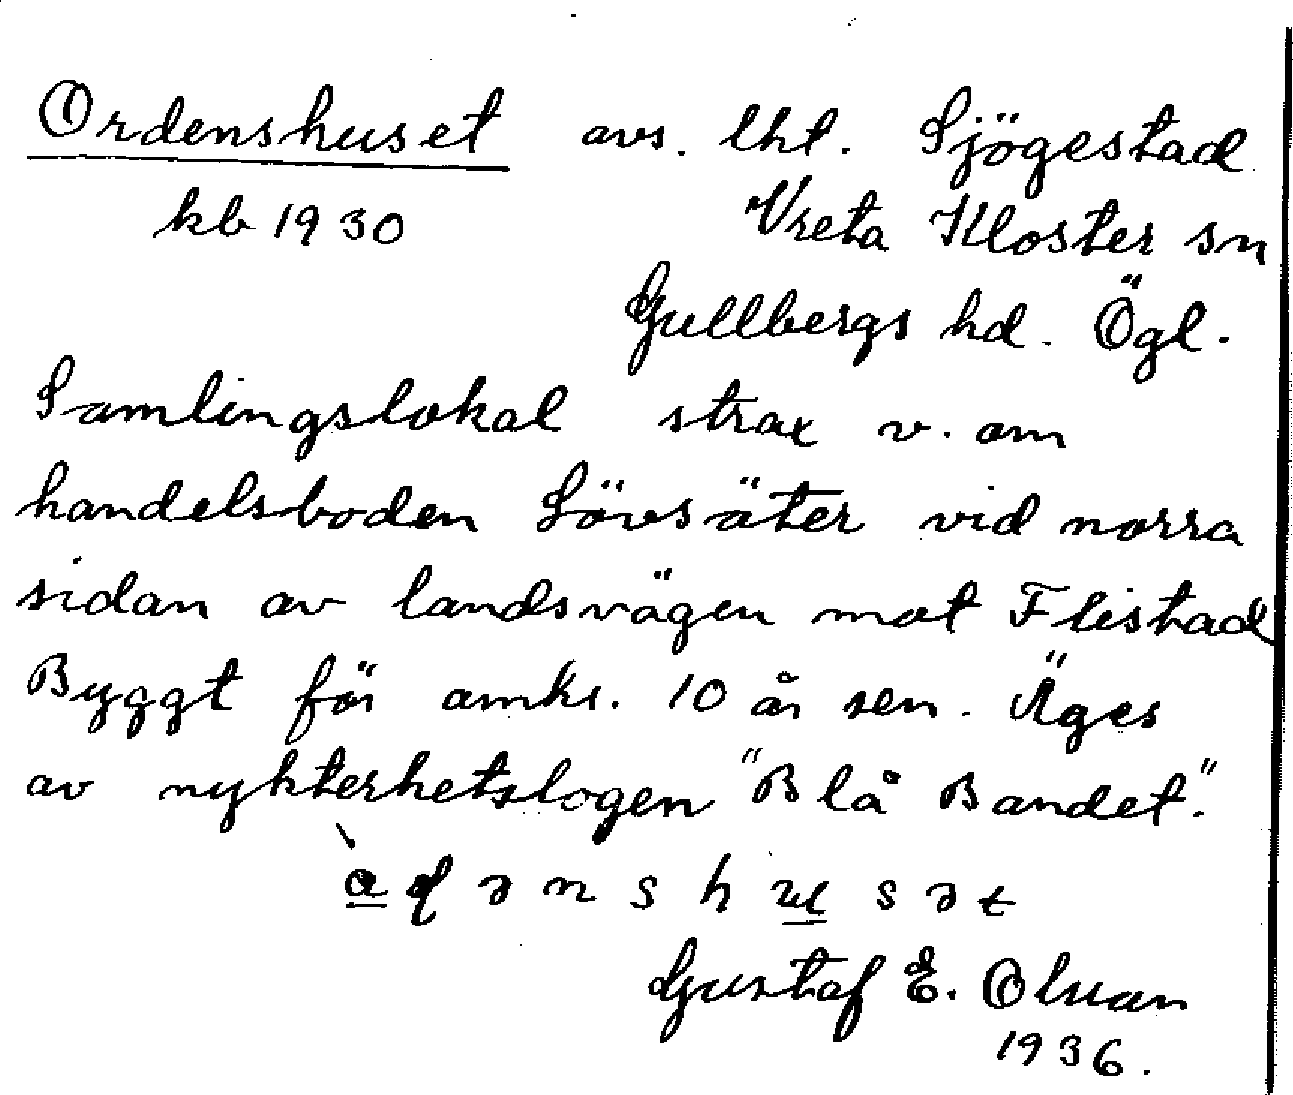 Ordenshuset avs. lht. Sjögestad
kb 1930 Vreta Kloster sn
Gullbergs hd. Ögl.
Samlingslokal strax v. om
handelsboden Lövsäter vid norra
sidan av landsvägen mot Flistad
Byggt för omkr. 10 år sen. Äges
av nykterhetslogen "Blå Bandet."
Gustaf E. Olsson
1936.